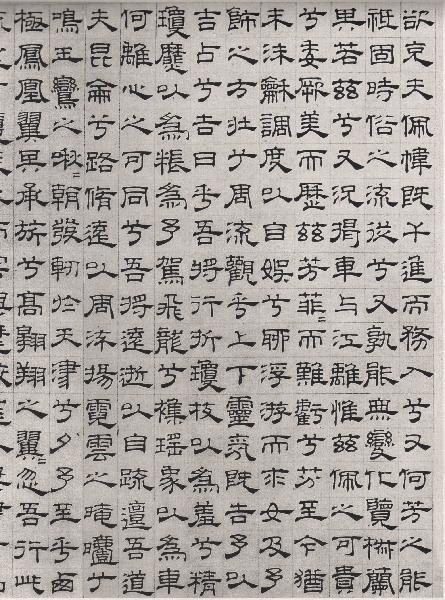 欲充夫佩幃既干進而務入兮又何芳之能
祗固時俗之流從兮又孰能無變化覽椒蘭
其若茲兮又況揭車与江離惟茲佩之可貴
兮委厥美而歷茲芳菲=而難虧兮芬至今猶
未沬龢調度以自娛兮聊浮游而求女及予
飾之方壯兮周流觀乎上下靈氛既告予以
吉占兮吉日乎吾將行折瓊枝以為羞兮精
瓊靡以為粻為予駕飛龍兮襍瑤象以為車
何離心之可同兮吾將遠逝以自疏邅吾道
夫昆侖兮路脩遠以周流揚霓雲之晻曖兮
鳴玉鸞之啾=朝發軔於天津兮夕予至乎西
極鳳凰翼其承旂兮高翱翔之翼=忽吾行此